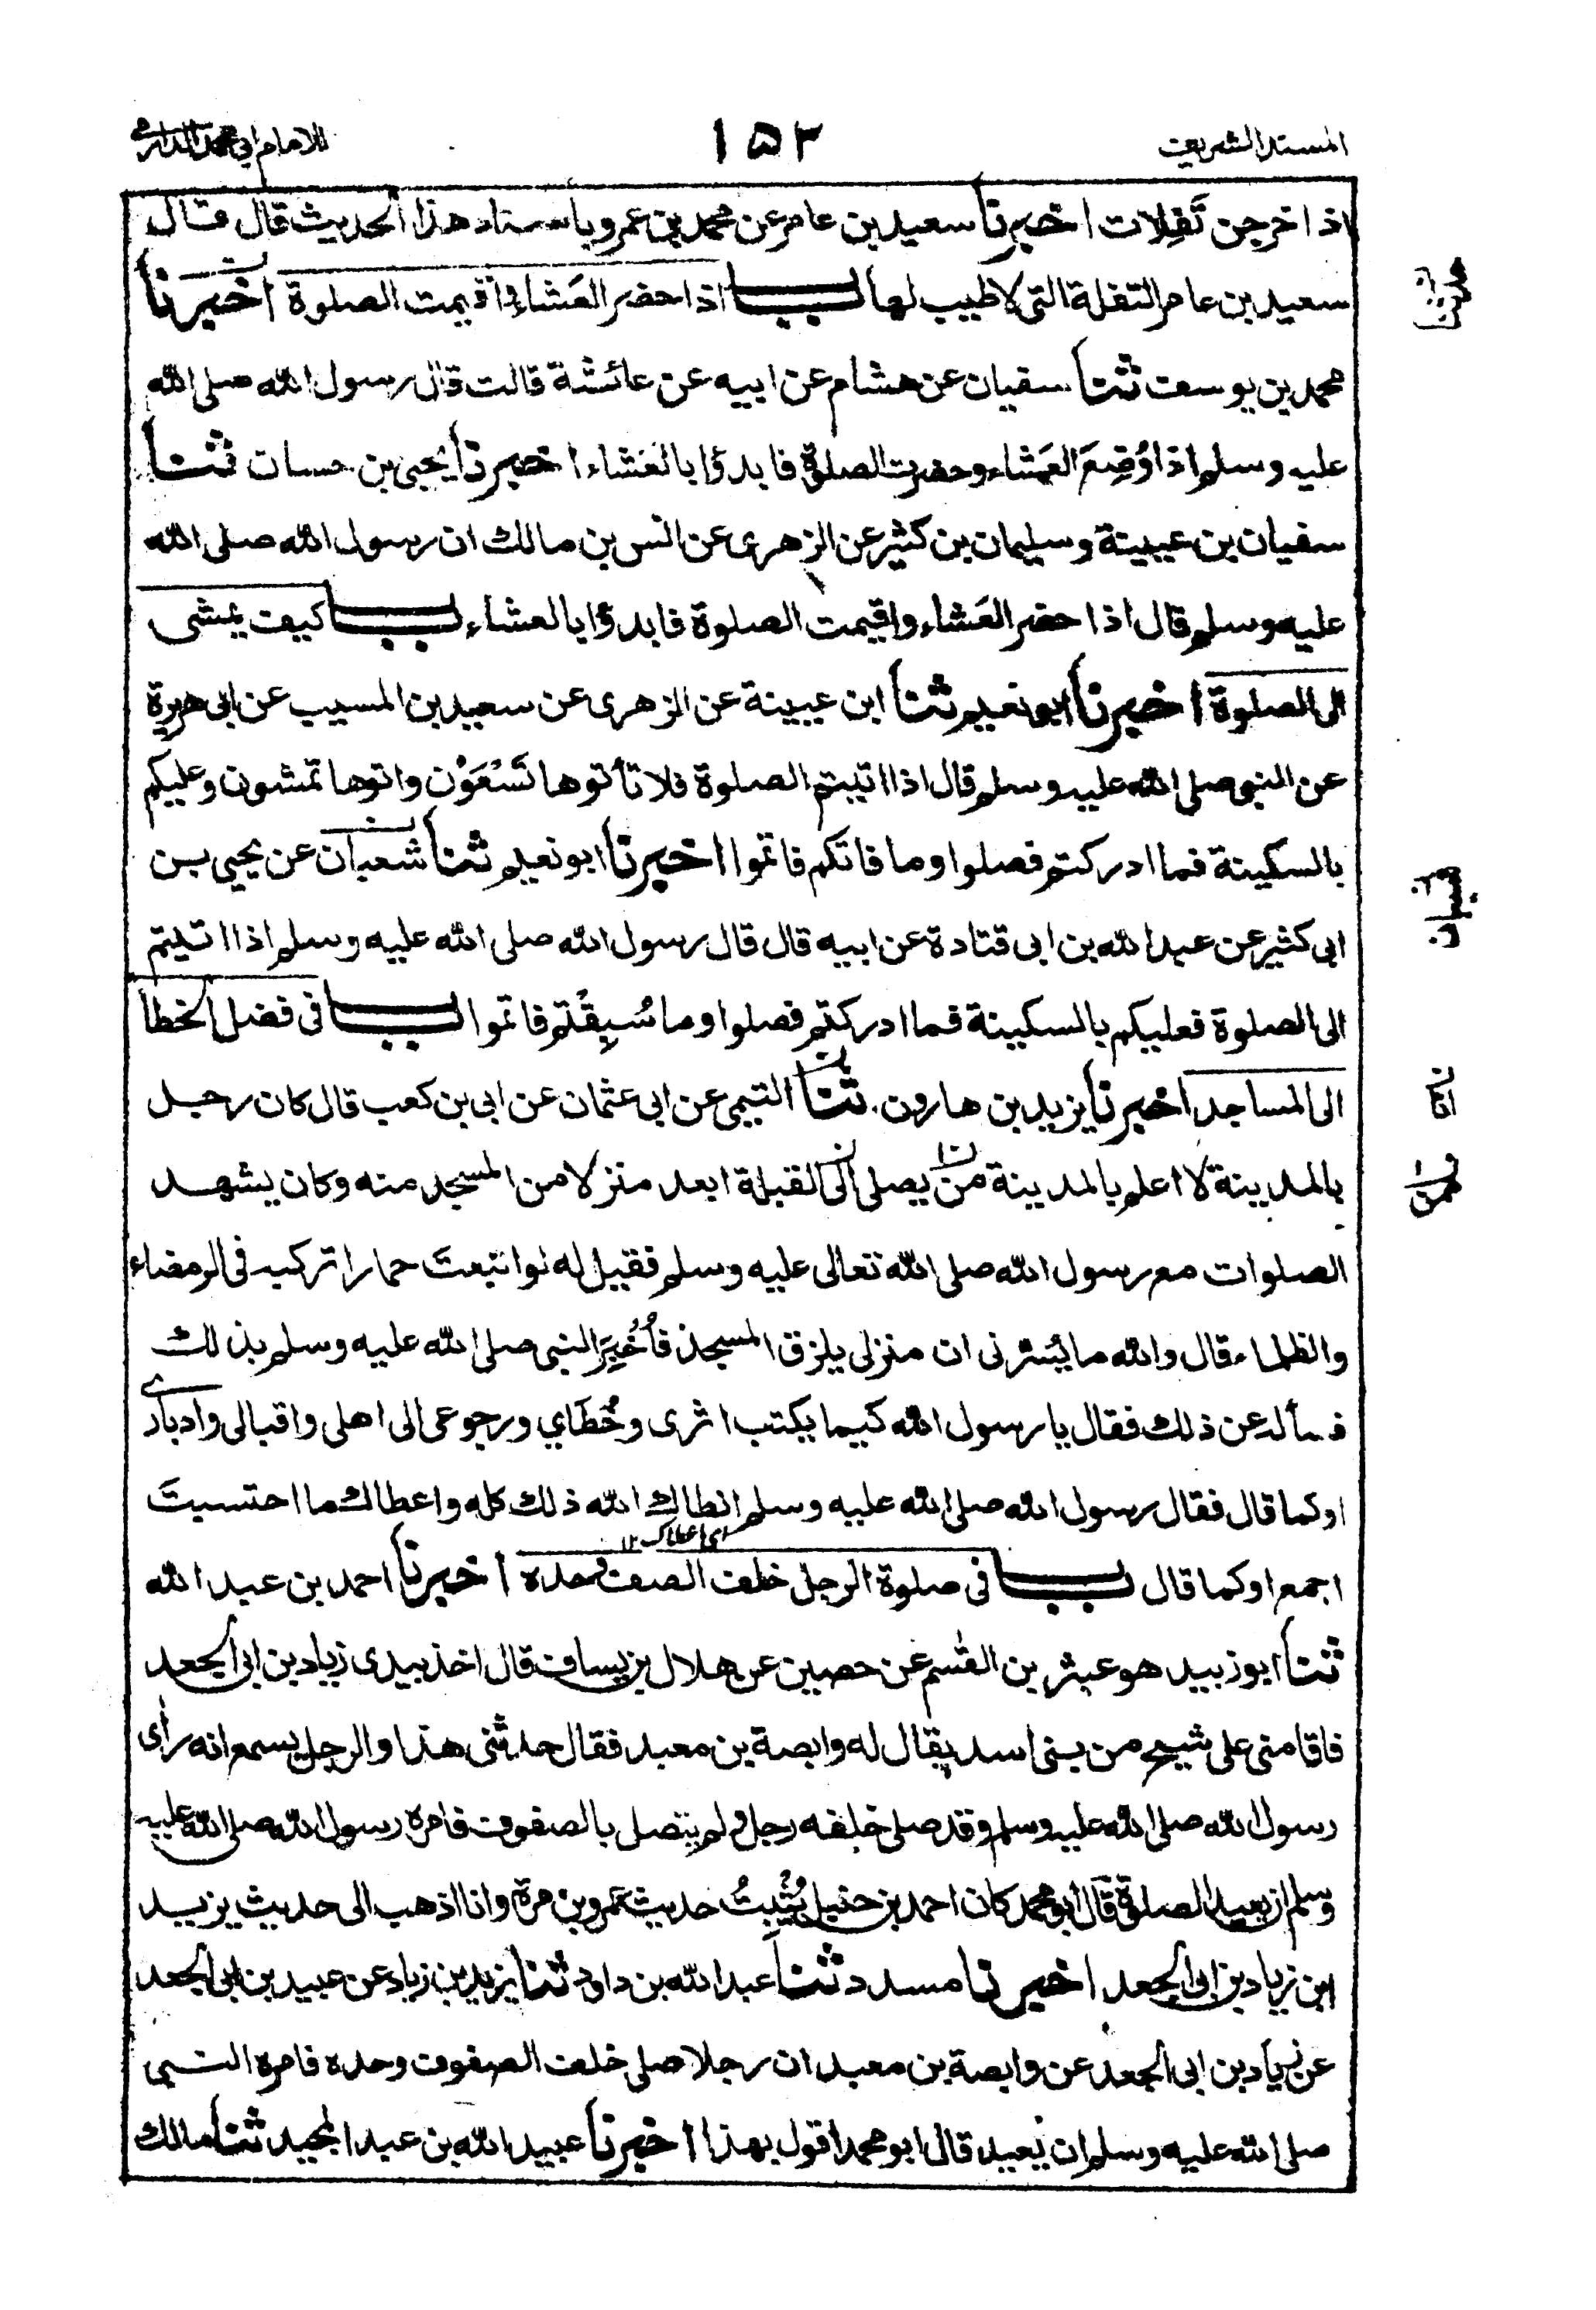 المسند الشريف
١٥٣
للامام ابي محمد الدارمي
اذا خرجن تَفِلات اخبرنا سعيد بن عامر عن محمد بن عمرو باسناد هذا الحديث قال قال
سعيد بن عامر التفلة التى لا طيب لها باب اذا حضر العَشاء واقيمت الصلوة اخبرنا
حدثنا
محمد بن يوسف ثنا سفيان عن هشام عن ابيه عن عائشة قالت قال رسول الله صلى الله
عليه وسلم اذا وُضِعَ العَشاء وحضرت الصلوة فابدؤا بالعَشاء اخبرنا يحيى بن حسان ثنا
سفيان بن عيينة وسليمان بن كثير عن الزهرى عن انس بن مالك ان رسول الله صلى الله
عليه وسلم قال اذا حضر العَشاء واقيمت الصلوة فابدؤا بالعشاء باب كيف يمشى
الى الصلوة اخبرنا ابو نعيم ثنا ابن عيينة عن الزهرى عن سعيد بن المسيب عن ابى هريرة
عن النبى صلى الله عليه وسلم قال اذا اتيتم الصلوة فلا تأتوها تَسْعَوْن واتوها تمشون وعليكم
بالسكينة فما ادركتم فصلوا وما فاتكم فاتموا اخبرنا ابو نعيم ثنا شعبان عن يحيى بن
شيبان
ابى كثير عن عبد الله بن ابى قتادة عن ابيه قال قال رسول الله صلى الله عليه وسلم اذا اتيتم
الى الصلوة فعليكم بالسكينة فما ادركتم فصلوا وما سُبِقْتم فاتموا باب فى فضل الخطأ
الى المساجد اخبرنا يزيد بن هارون ثنا التيمى عن ابى عثمان عن ابى بن كعب قال كان رجل
انا
بالمدينة لا اعلم بالمدينة من يصلى الى القبلة ابعد منزلا من المسجد منه وكان يشهد
ممن
الصلوات مع رسول الله صلى الله تعالى عليه وسلم فقيل له لو ابتعتَ حمارا تركبه فى الرمضاء
والظلماء قال والله ما يسُرنى ان منزلى يلزق المسجد فأُخْبِرَ النبى صلى الله عليه وسلم بذلك
فسأله عن ذلك فقال يا رسول الله كيما يكتب اثرى وخُطَاي ورجوعى الى اهلى واقبالى وادبارى
او كما قال فقال رسول الله صلى الله عليه وسلم انطاك الله ذلك كله واعطاك ما احتسبتَ
اى اعطاك ١٢
اجمع او كما قال باب فى صلوة الرجل خلف الصف وحده اخبرنا احمد بن عبد الله
ثنا ابو زبيد هو عبثر بن القٰسم عن حصين عن هلال بن يساف قال اخذ بيدى زياد بن ابى الجعد
فاقامنى على شيخ من بنى اسد يقال له وابصة بن معبد فقال حدثنى هذا والرجل يسمع انه رأى
رسول الله صلى الله عليه وسلم وقد صلى خلفه رجل ولم يتصل بالصفوف فامره رسول الله صلى الله عليه
وسلم ان يعيد الصلوة قال ابو محمد كان احمد بن حنبل يُثْبِتُ حديث عمرو بن مرة وانا اذهب الى حديث يزيد
ابن زياد بن ابى الجعد اخبرنا مسدد ثنا عبد الله بن داود ثنا يزيد بن زياد عن عبيد بن ابى الجعد
عن زياد بن ابى الجعد عن وابصة بن معبد ان رجلا صلى خلف الصفوف وحده فامره النبى
صلى الله عليه وسلم ان يعيد قال ابو محمد اقول بهذا اخبرنا عبيد الله بن عبد المجيد ثنا مالك